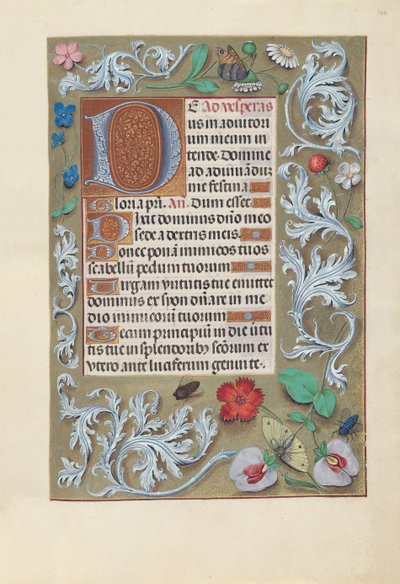 DE Ad vesperas
us in adiutori
um meum in
tende. Domine
ad adiuuādūz
me festina
Gloria pr̄i. Añ. Dum esset
Dixit dominus dn̄o meo
sede a dextris meis
Donec ponā inimicos tuos
scabellū pedum tuorum
Virgam virtutis tue emittet
dominus ex syon dn̄are in me
dio inimicorū tuorum
Tecum principiū in die uirtu
tis tue in splendorib9 sc̄orum ex
vtero ante luciferum genui te